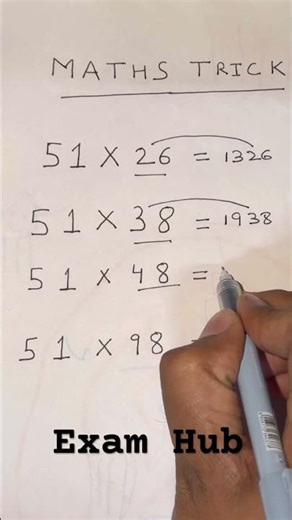 MATHS TRICK
51 × 26 = 1326
51 × 38 = 1938
51 × 48 =
51 × 98
Exam Hub